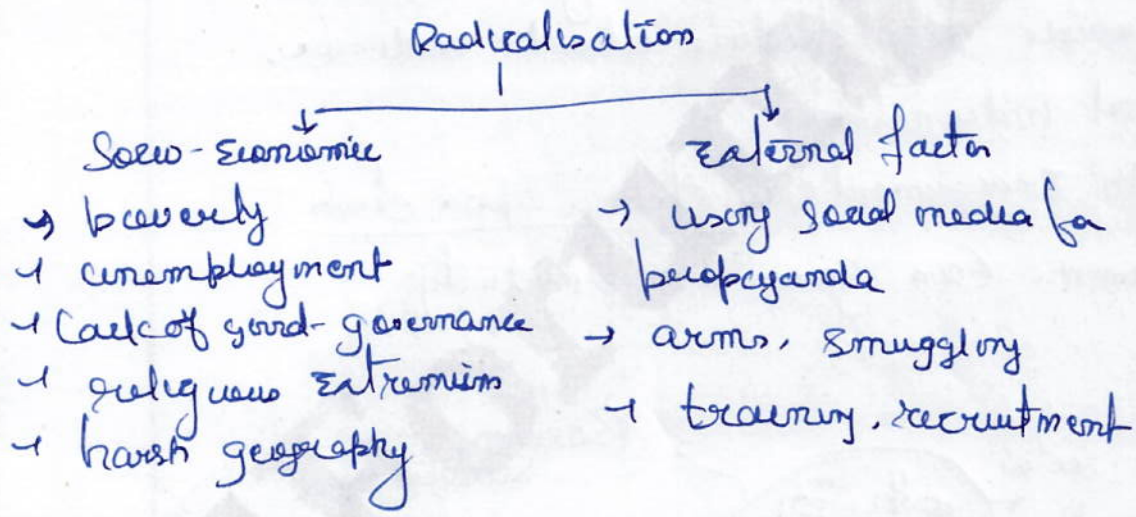 Radicalisation
Socio-Economic
→ poverty
→ unemployment
→ Lack of good-governance
→ religious Extremism
→ harsh geography
External factor
→ using social media for
propaganda
→ arms, smuggling
→ training, recruitment